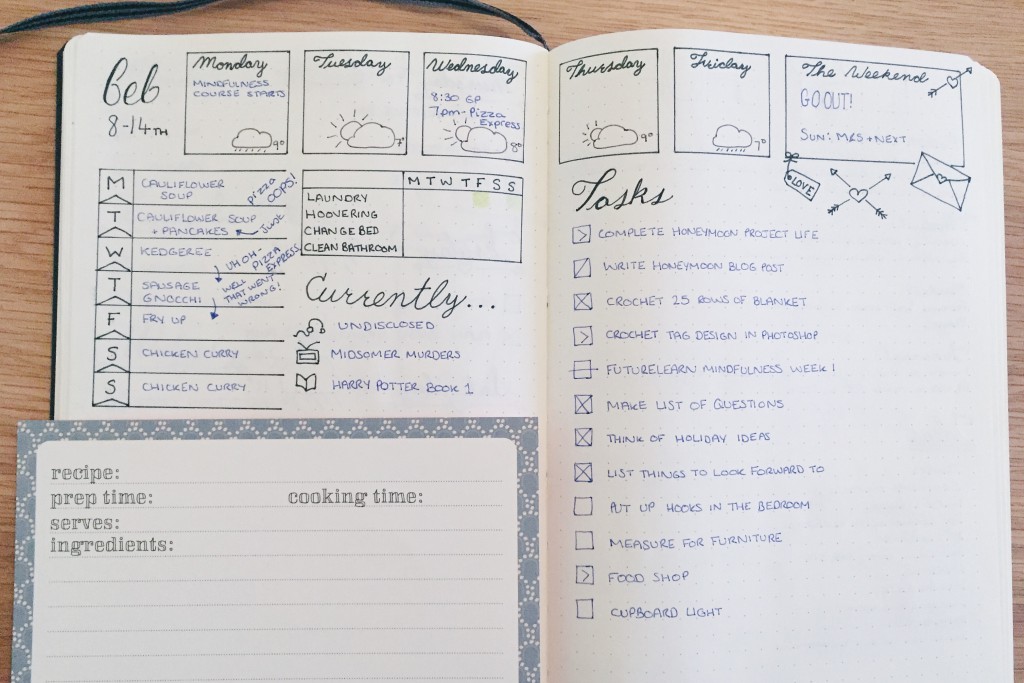 Feb
8-14TH
Monday
MINDFULNESS
COURSE STARTS
9°
Tuesday
7°
Wednesday
8:30 GP
7pm-Pizza
Express
8°
Thursday
9°
Friday
7°
The Weekend
GO OUT!
SUN: M&S + NEXT
LOVE
M
CAULIFLOWER
SOUP
pizza
OOPS!
T
CAULIFLOWER SOUP
+ PANCAKES
Just
W
KEDGEREE
UH OH-
PIZZA
EXPRESS
T
SAUSAGE
GNOCCHI
WELL
THAT WENT
WRONG!
F
FRY UP
S
CHICKEN CURRY
S
CHICKEN CURRY
M T W T F S S
LAUNDRY
HOOVERING
CHANGE BED
CLEAN BATHROOM
Currently...
UNDISCLOSED
MIDSOMER MURDERS
HARRY POTTER BOOK 1
recipe:
prep time: cooking time:
serves:
ingredients:
Tasks
COMPLETE HONEYMOON PROJECT LIFE
WRITE HONEYMOON BLOG POST
CROCHET 25 ROWS OF BLANKET
CROCHET TAG DESIGN IN PHOTOSHOP
FUTURELEARN MINDFULNESS WEEK 1
MAKE LIST OF QUESTIONS
THINK OF HOLIDAY IDEAS
LIST THINGS TO LOOK FORWARD TO
PUT UP HOOKS IN THE BEDROOM
MEASURE FOR FURNITURE
FOOD SHOP
CUPBOARD LIGHT